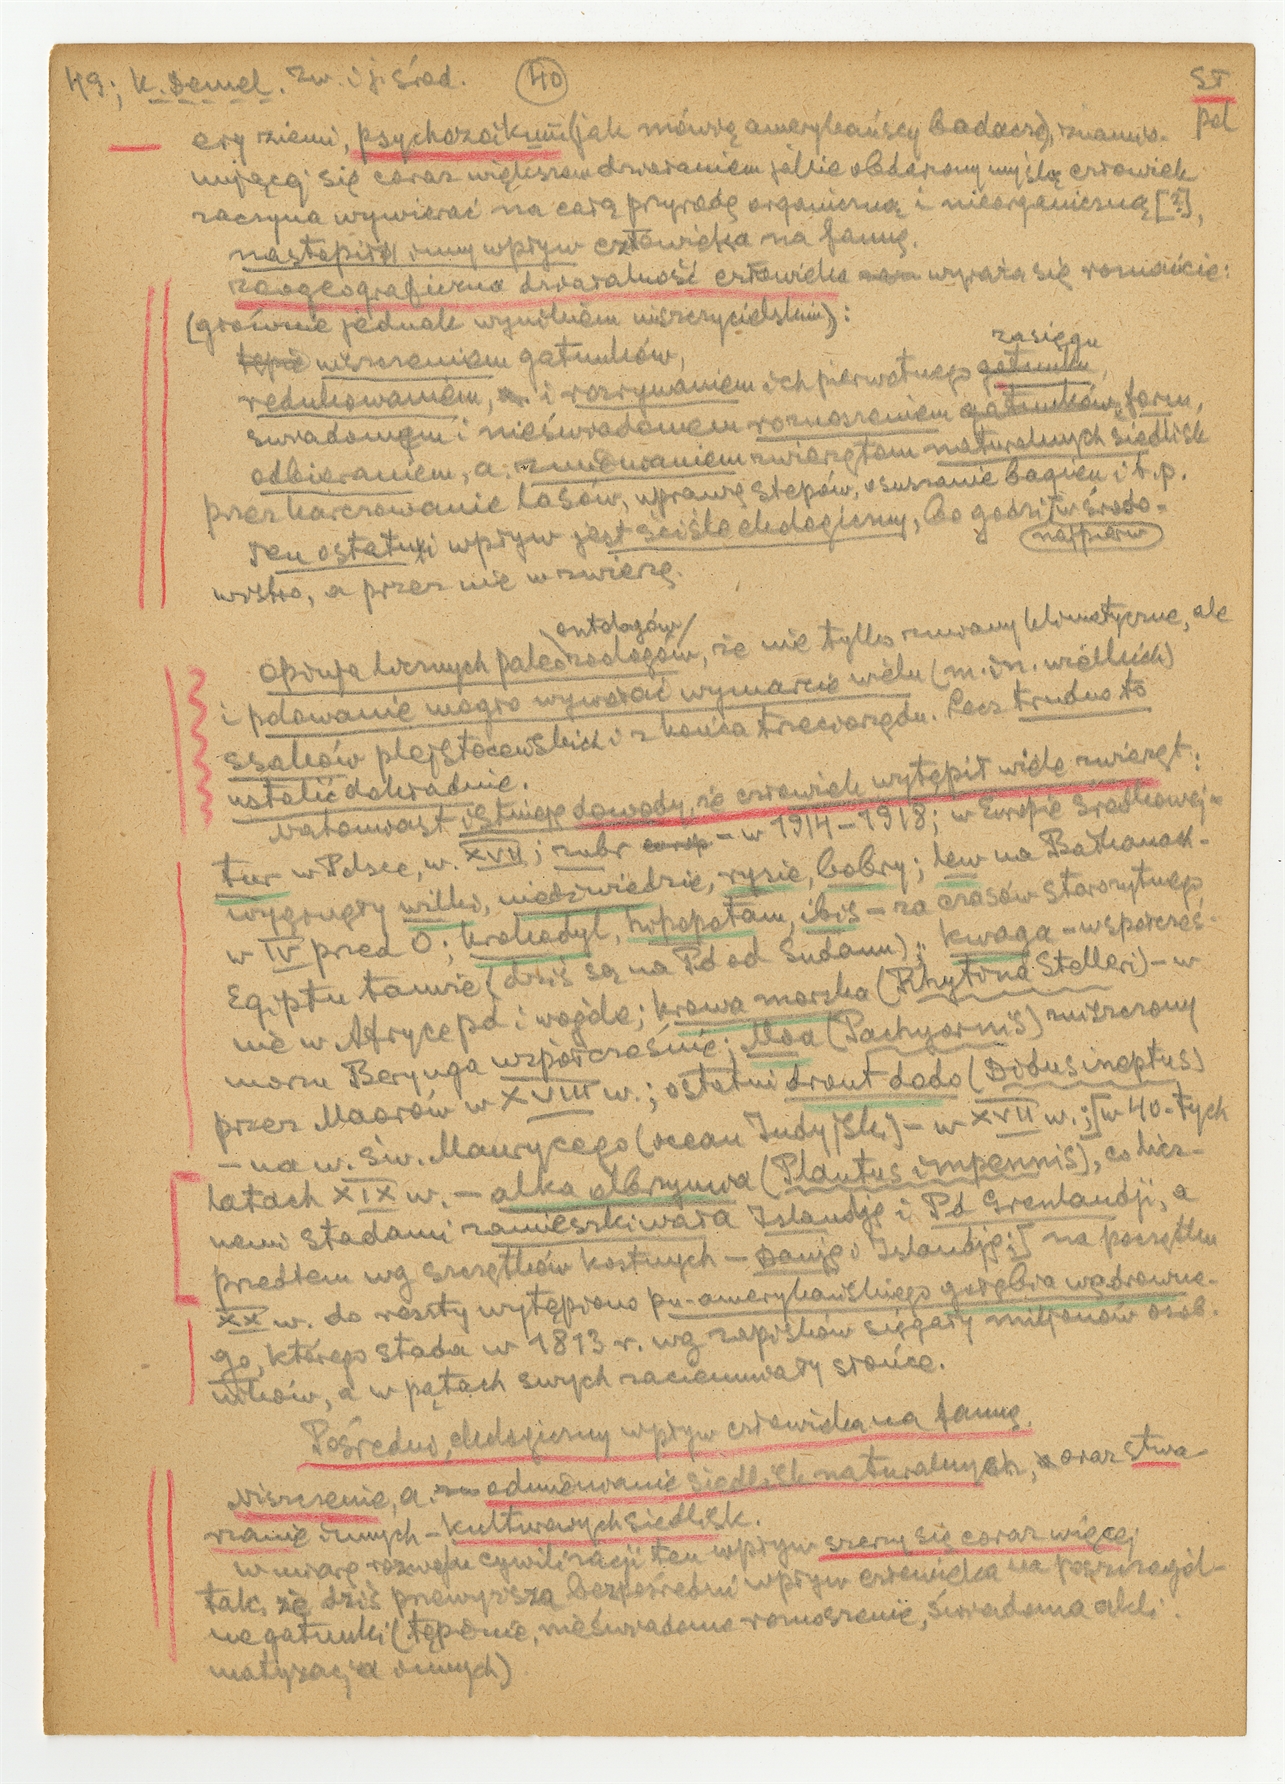 49; K. Demel. Zw. i j. środ. 40 ST
pol
ery ziemi, psychozoikum (jak mówią amerykańscy badacze), znamio-
nującej się coraz większem działaniem jakie obdarzony myślą człowiek
zaczyna wywierać na całą przyrodę organiczną i nieorganiczną [?],
nastąpił inny wpływ człowieka na faunę.
zoogeograficzna działalność człowieka wyraża się rozmaicie:
(głównie jednak wynikiem niszczycielskim):
zasięgu
tępie niszczeniem gatunków,
redukowaniem, i rozrywaniem ich pierwotnego gatunku,
świadomym i nieświadomem roznoszeniem gatunków, form,
odbieraniem, a. zmienianiem zwierzętom naturalnych siedlisk
przez karczowanie lasów, uprawę stepów, osuszanie bagien i t.p.
Ten ostatni wpływ jest ściśle ekologiczny, bo godzi w środo-
najpierw
wisko, a przez nie w zwierzę.
ontologów
Opinją licznych paleozoologów, że nie tylko zmiany klimatyczne, ale
i polowanie mogło wywołać wymarcie wielu (m. in. wielkich)
ssaków plejstoceńskich i z końca trzeciorzędu. Lecz trudno to
ustalić dokładnie.
Natomiast istnieją dowody, że człowiek wytępił wiele zwierząt:
tur w Polsce, w. XVII; żubr – w 1914–1918; w Europie środkowej –
wyginęły wilki, niedźwiedzie, rysie, bobry; lew na Bałkanach –
w IV przed 0; krokodyl, hipopotam, ibis – za czasów starożytnego
Egiptu tamże (dziś są na Pd od Sudanu); kwaga – współcześ-
nie w Afryce pd i wogóle; krowa morska (Rhytina Stelleri) – w
morzu Berynga współcześnie; Moa (Pachyornis) zniszczony
przez Maorów w XVIII w.; ostatni dront dodo (Didus ineptus)
– na w. św. Maurycego (ocean Indyjski) – w XVII w.; [w 40-tych
latach XIX w. – alka olbrzymia (Plautus impennis), co licz-
nemi stadami zamieszkiwała Islandję i Pd Grenlandji, a
przedtem wg szczątków kostnych – Danję i Islandję;] na początku
XX w. do reszty wytępiono pn-amerykańskiego gołębia wędrowne-
go, którego stada w 1813 r. wg zapisków sięgały miljonów osob-
ników, a w pętach swych zaciemniały słońce.
Pośredni, ekologiczny wpływ człowieka na faunę.
Niszczenie, a. odmienianie siedlisk naturalnych, oraz stwa
rzanie innych – kulturowych siedlisk.
W miarę rozwoju cywilizacji ten wpływ szerzy się coraz więcej
tak, że dziś przewyższa bezpośredni wpływ człowieka na poszczegól-
ne gatunki (tępienie, nieświadome roznoszenie, świadoma akli
matyzacja innych)